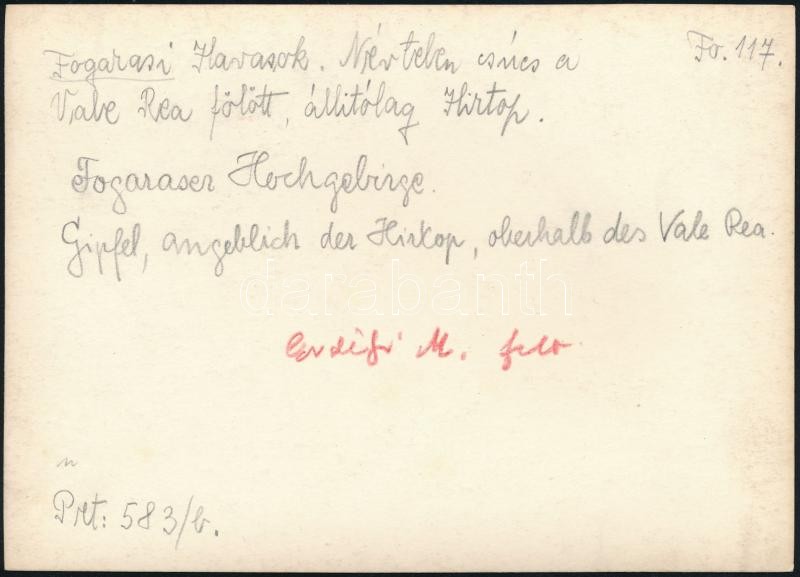 Fogarasi Havasok. Névtelen csúcs a
Fo. 117.
Vale Rea fölött, állitólag Hirtop.
Fogaraser Hochgebirge.
Gipfel, angeblich der Hirkop, oberhalb des Vale Rea.
darabanth
Erdélyi M. felv
Prt: 583/b.